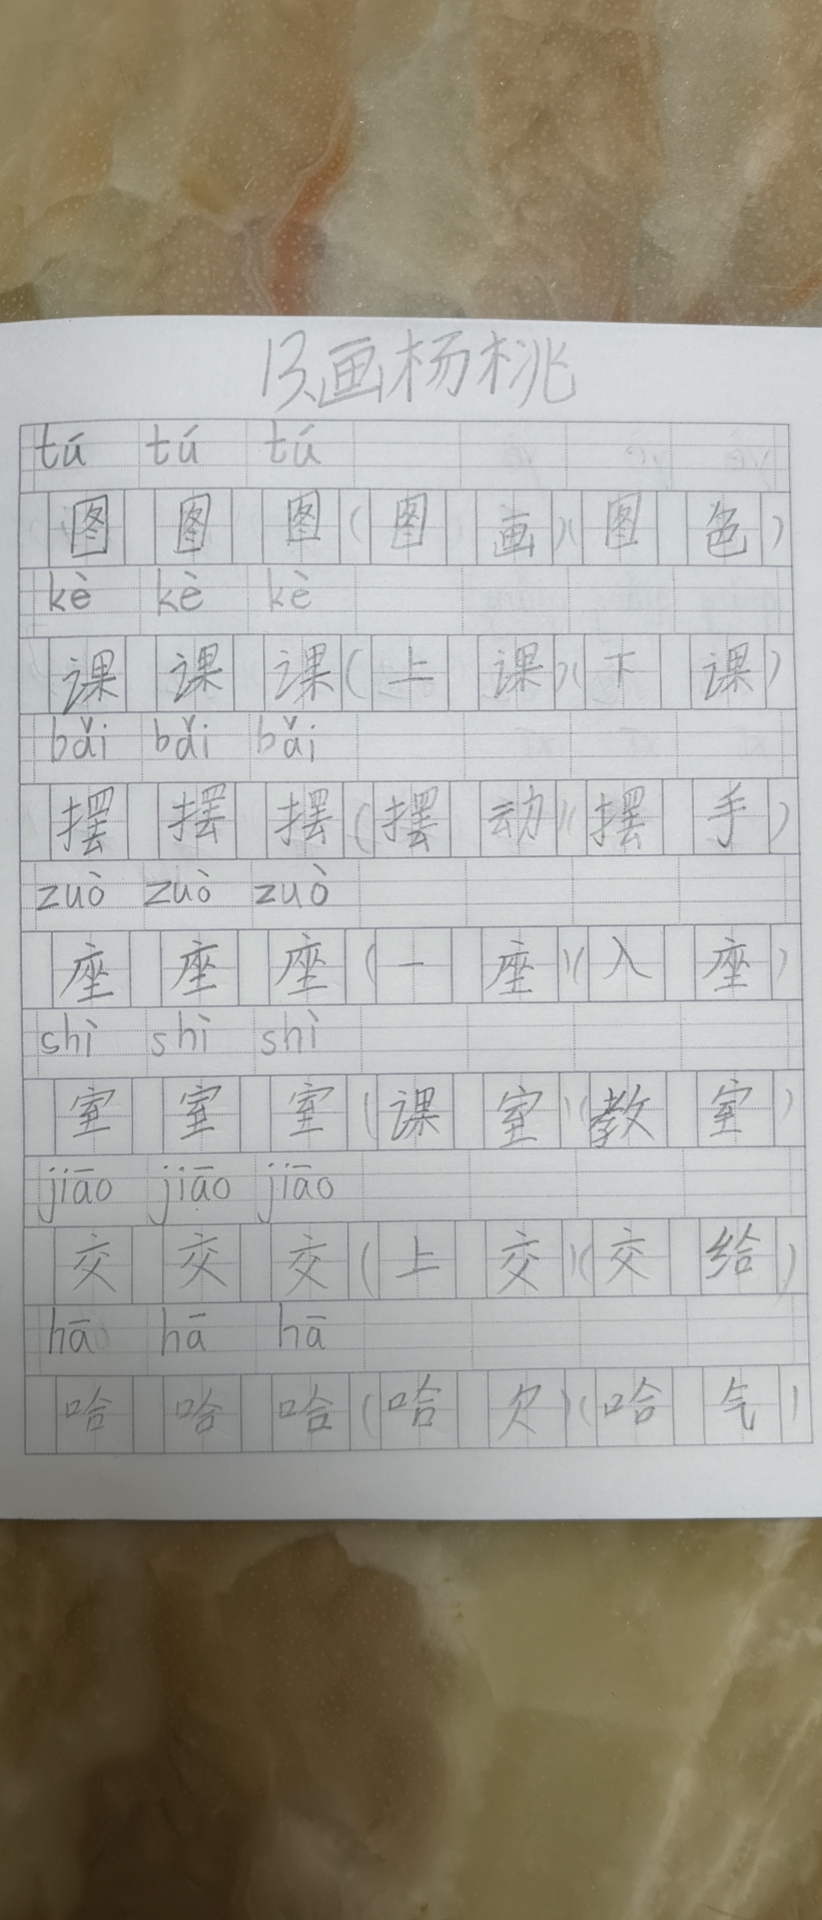 13、画杨桃
tú tú tú
图 图 图 (图 画)(图 色)
kè kè kè
课 课 课 (上 课)(下 课)
bǎi bǎi bǎi
摆 摆 摆 (摆 动)(摆 手)
zuò zuò zuò
座 座 座 (一 座)(入 座)
shì shì shì
室 室 室 (课 室)(教 室)
jiāo jiāo jiāo
交 交 交 (上 交)(交 给)
hā hā hā
哈 哈 哈 (哈 欠)(哈 气)